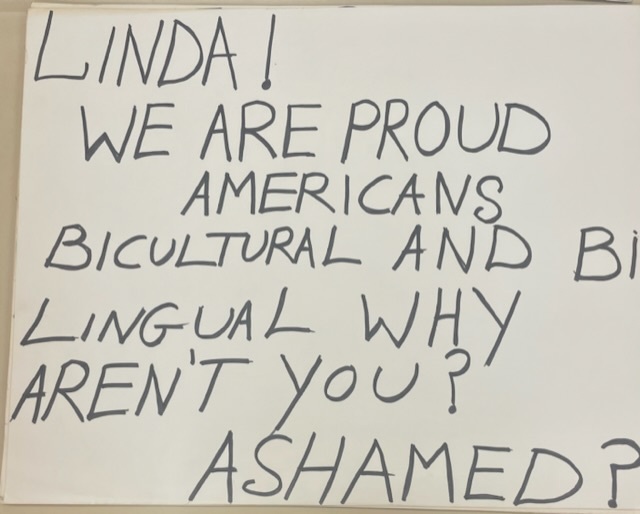 LINDA!
WE ARE PROUD
AMERICANS
BICULTURAL AND Bi
LINGUAL WHY
AREN'T YOU?
ASHAMED?